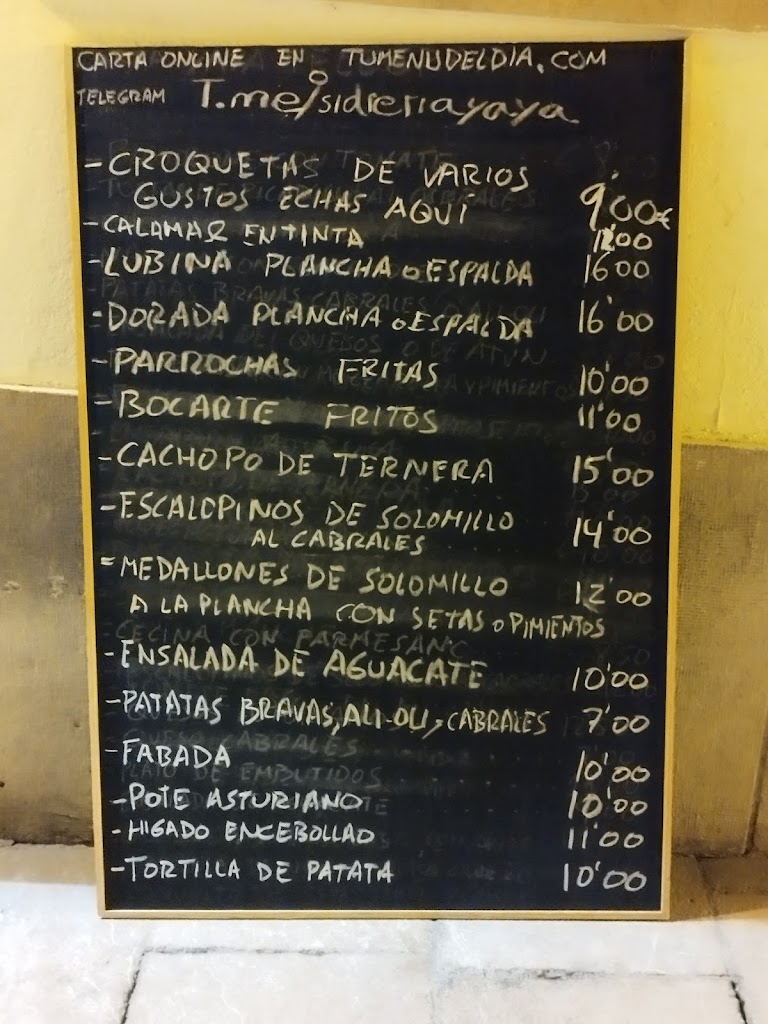 CARTA ONLINE EN TUMENUDELDIA.COM
TELEGRAM T.me/sidreriayaya
- CROQUETAS DE VARIOS
GUSTOS ECHAS AQUI 9'00€
- CALAMAR EN TINTA 12'00
- LUBINA PLANCHA O ESPALDA 16'00
- DORADA PLANCHA O ESPALDA 16'00
- PARROCHAS FRITAS 10'00
- BOCARTE FRITOS 11'00
- CACHOPO DE TERNERA 15'00
- ESCALOPINOS DE SOLOMILLO 14'00
AL CABRALES
- MEDALLONES DE SOLOMILLO 12'00
A LA PLANCHA CON SETAS O PIMIENTOS
- ENSALADA DE AGUACATE 10'00
- PATATAS BRAVAS, ALI-OLI, CABRALES 7'00
- FABADA 10'00
- POTE ASTURIANO 10'00
- HIGADO ENCEBOLLAO 11'00
- TORTILLA DE PATATA 10'00